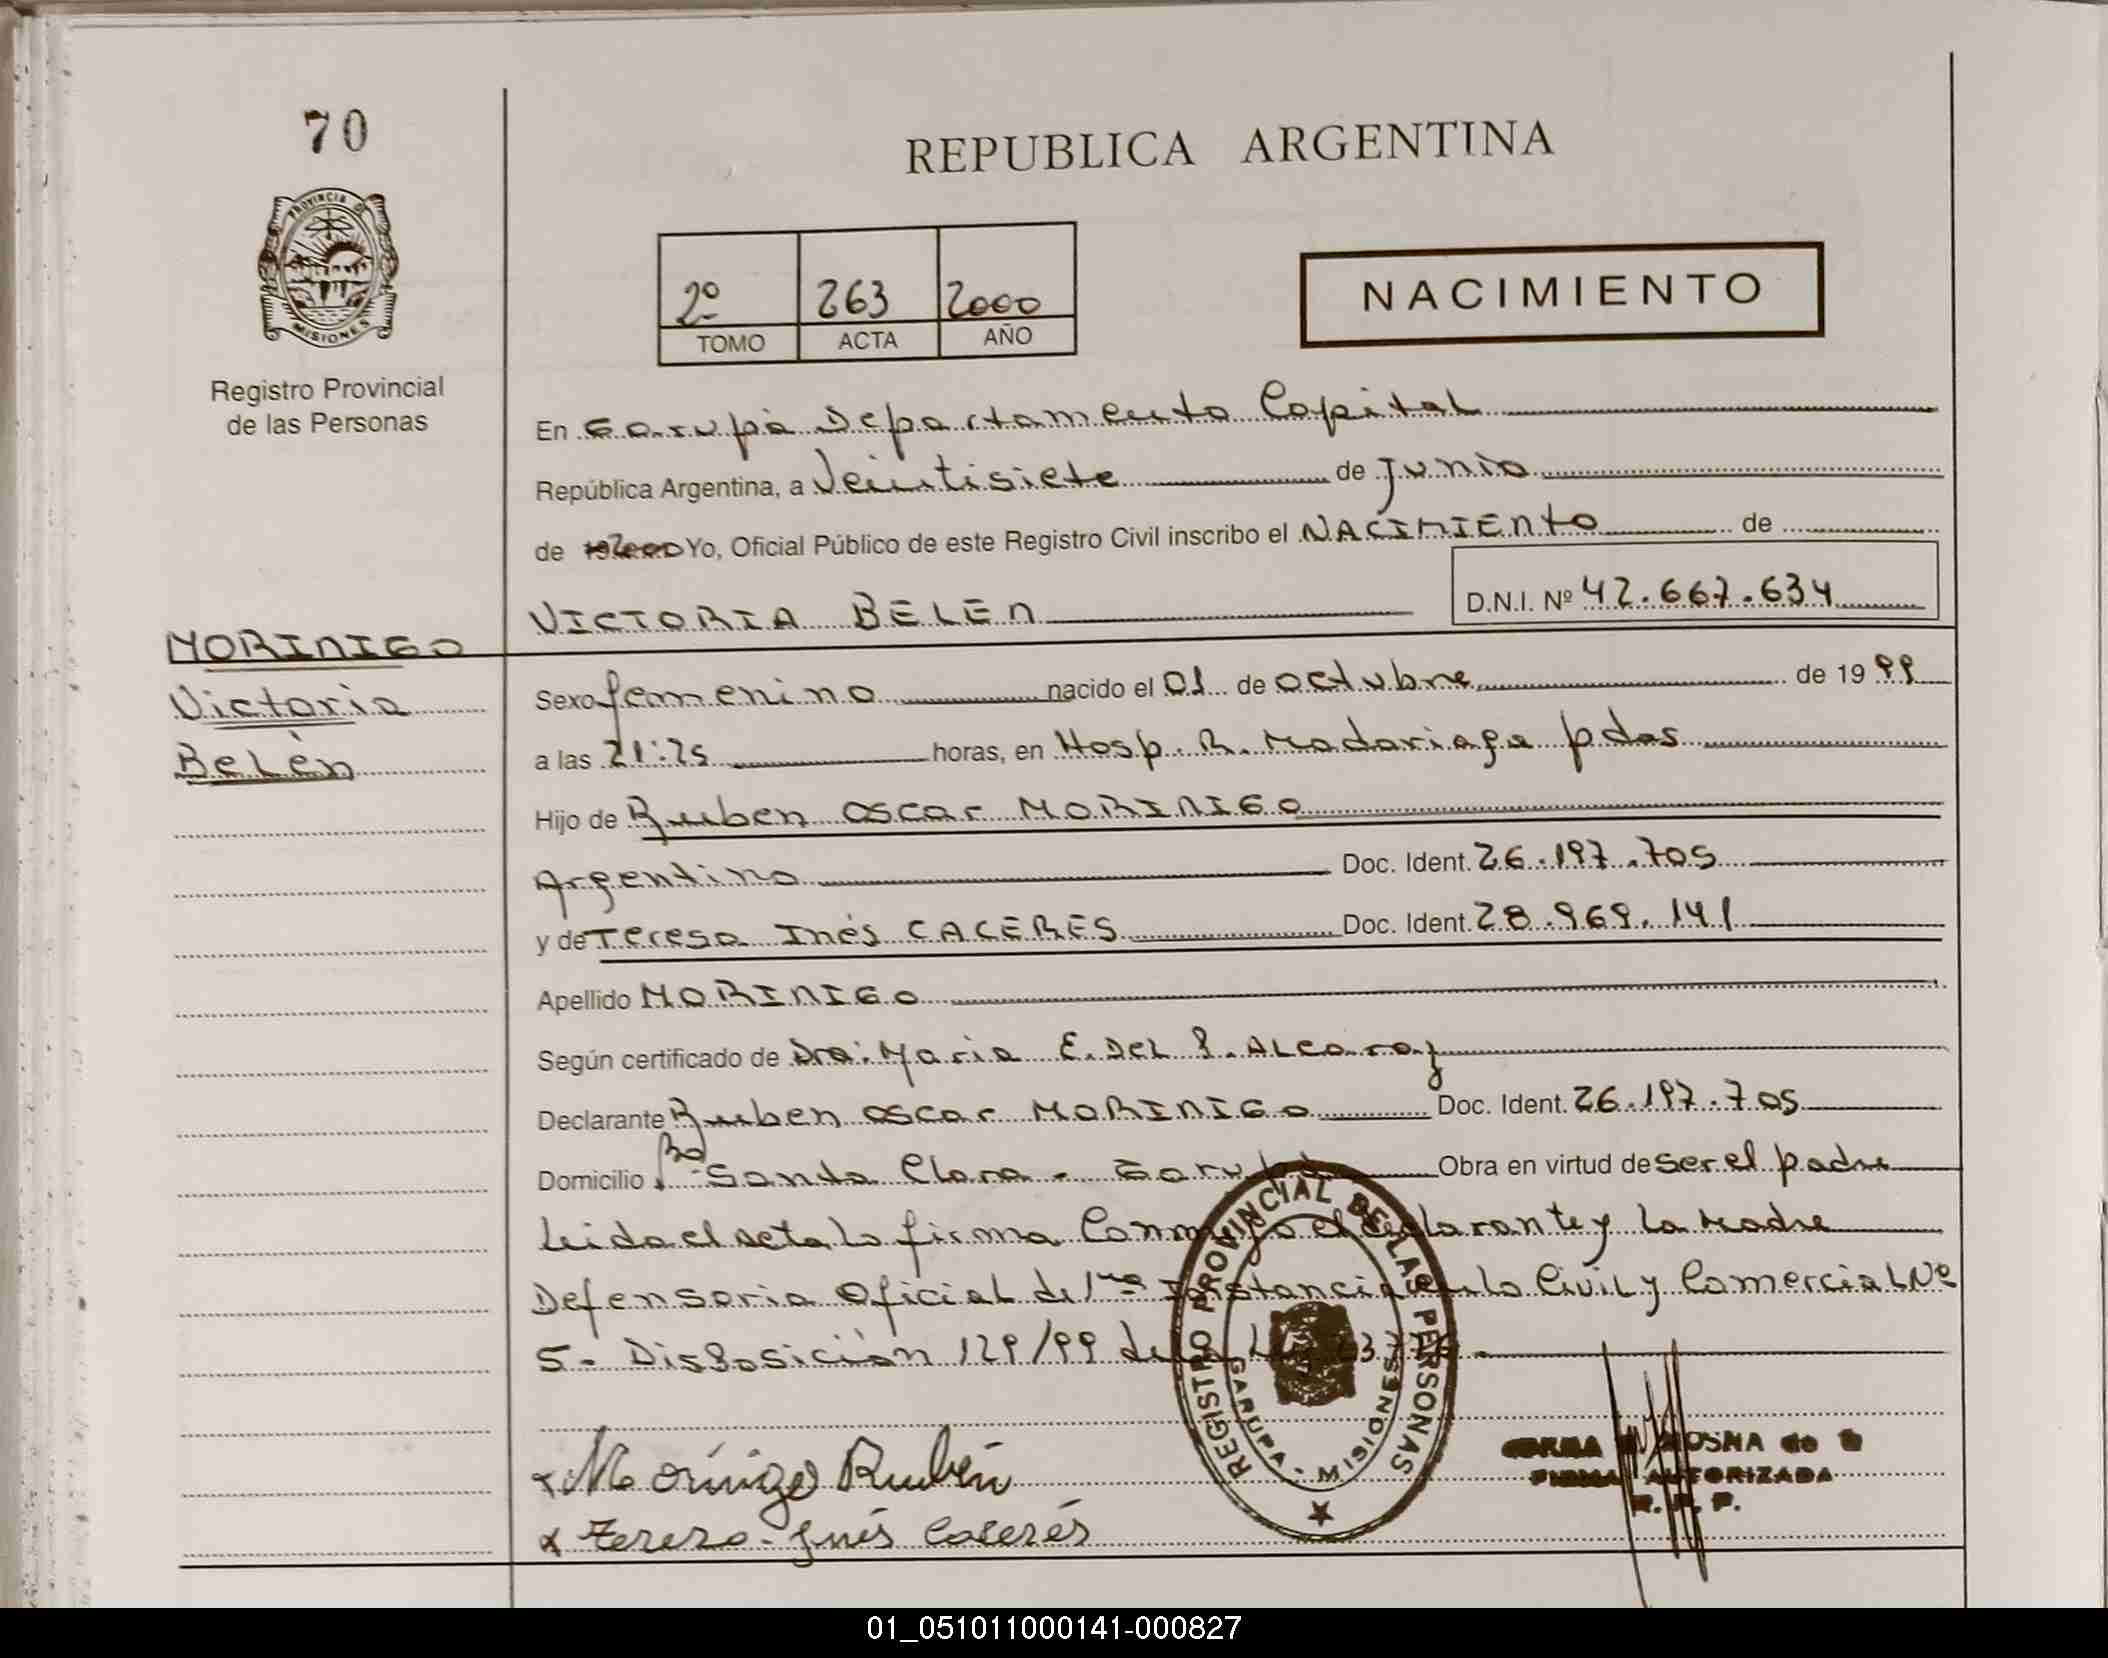 70
REPUBLICA ARGENTINA
PROVINCIA DE
MISIONES
Registro Provincial
de las Personas
2º 263 2000
TOMO ACTA AÑO
NACIMIENTO
En Garupá Departamento Capital
República Argentina, a Veintisiete de Junio
de 2000 Yo, Oficial Público de este Registro Civil inscribo el NACIMIENTO de
VICTORIA BELEN
D.N.I. Nº 42.667.634
MORINIGO
Victoria
Belén
Sexo femenino nacido el 01 de octubre de 1999
a las 21:25 horas, en Hosp. R. Madariaga pdas
Hijo de Ruben Oscar MORINIGO
Argentino Doc. Ident. 26.197.705
y de Teresa Inés CACERES Doc. Ident. 28.969.141
Apellido MORINIGO
Según certificado de Dra: Maria E. Del P. Alcaraz
Declarante Ruben Oscar MORINIGO Doc. Ident. 26.197.705
Domicilio Bo Santa Clara - Garupá Obra en virtud de ser el padre
Leida el acta la firma Conmigo el declarante y la Madre
Defensoria Oficial de 1ra Instancia en lo Civil y Comercial Nº
5. Disposición 129/99 de
REGISTRO PROVINCIAL DE LAS PERSONAS
GARUPA - MISIONES
x Morinigo Rubén
x Teresa Inés Caceres
FIRMA AUTORIZADA
R. P. P.
01_051011000141-000827